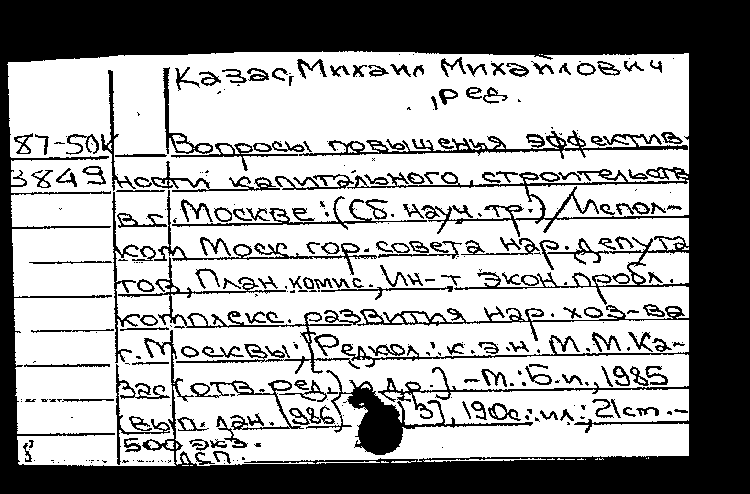 Казас, Михаил Михайлович
, ред.
87-50К Вопросы повышения эффектив-
3849 ности капитального строительств
в г. Москве : (Сб. науч. тр.) / Испол-
ком Моск. гор. совета нар. депута
тов, План. комис., Ин-т экон. пробл.
комплекс. развития нар. хоз-ва
г. Москвы ; [Редкол.: к. э. н. М. М. Ка-
зас (отв. ред.) и др.]. - М. : Б. и., 1985
(вып. дан. 1986) [3], 190 с. : ил. ; 21 см. -
500 экз.
ДСП.